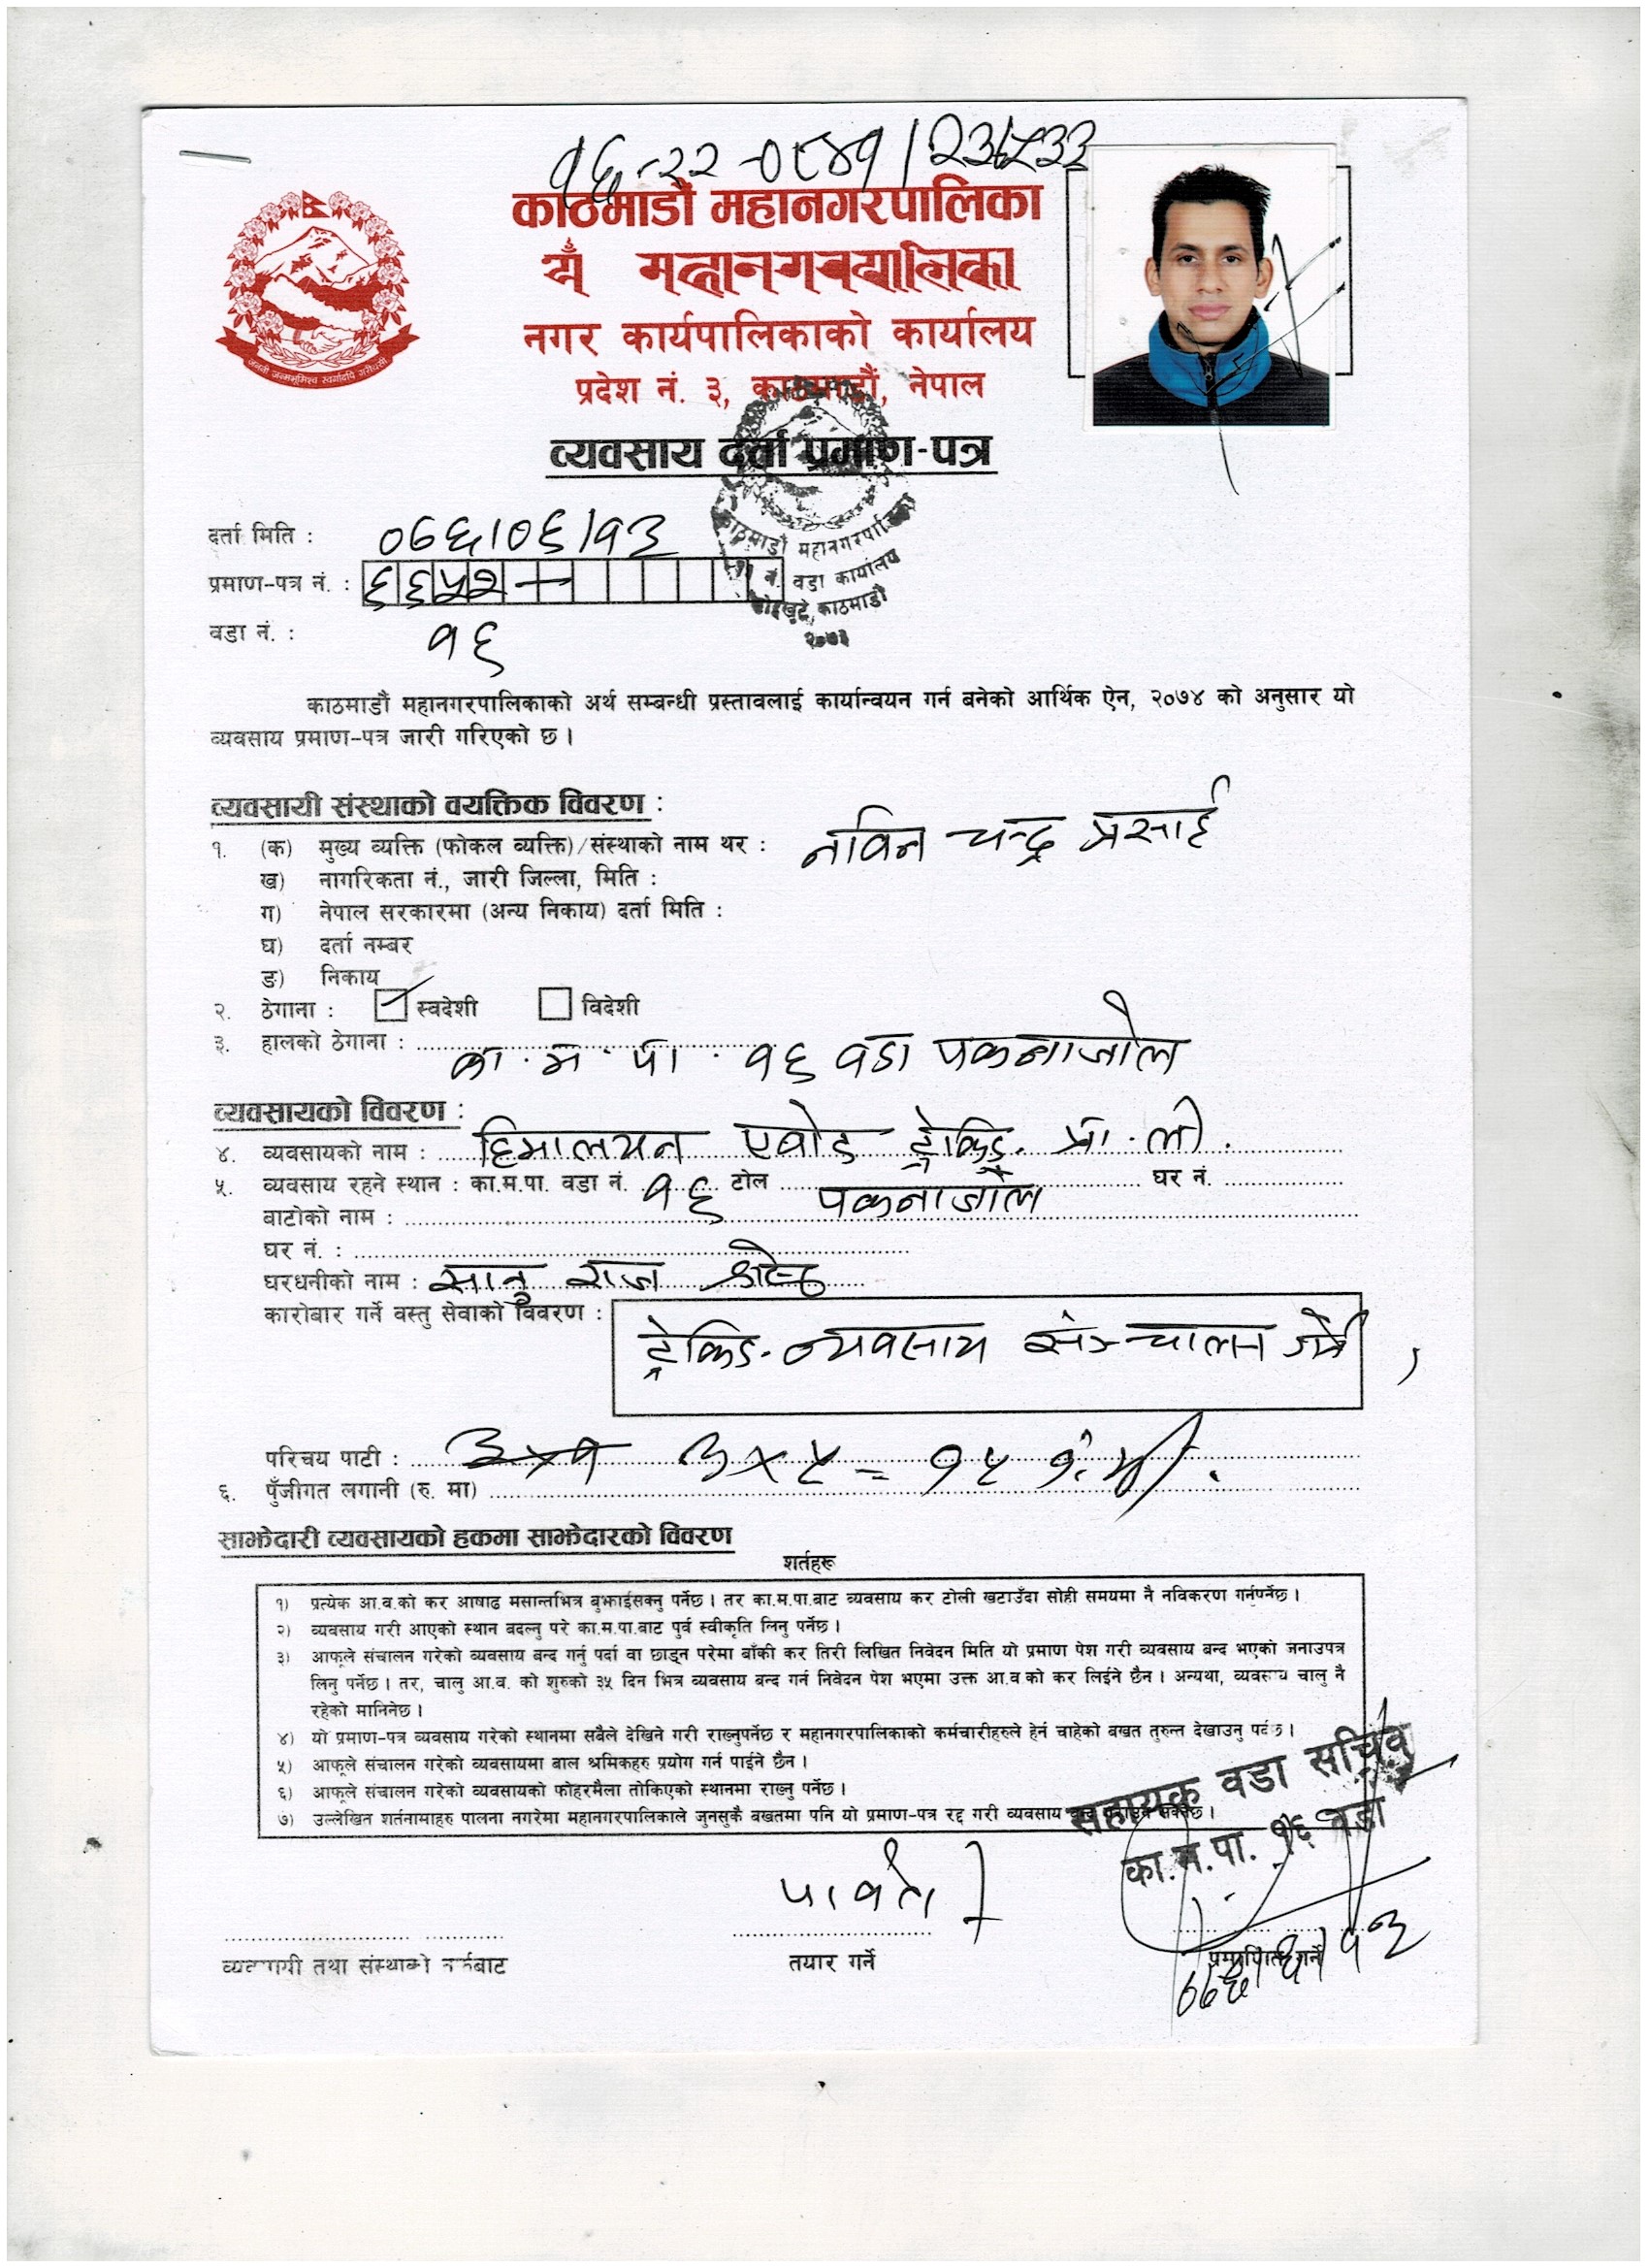 १६-२२-
काठमाडौं महानगरपालिका
नगर कार्यपालिकाको कार्यालय
प्रदेश नं. ३, काठमाडौं, नेपाल
व्यवसाय दर्ता प्रमाण-पत्र
दर्ता मिति : ०७६/०६/१३
प्रमाण-पत्र नं. : ६६५२
काठमाडौं महानगरपालिका
नं. वडा कार्यालय
काठमाडौं
२०७३
वडा नं. : १६
काठमाडौं महानगरपालिकाको अर्थ सम्बन्धी प्रस्तावलाई कार्यान्वयन गर्न बनेको आर्थिक ऐन, २०७४ को अनुसार यो
व्यवसाय प्रमाण-पत्र जारी गरिएको छ ।
व्यवसायी संस्थाको वयक्तिक विवरण :
१. (क) मुख्य व्यक्ति (फोकल व्यक्ति)/संस्थाको नाम थर : नविन चन्द्र प्रसाई
ख) नागरिकता नं., जारी जिल्ला, मिति :
ग) नेपाल सरकारमा (अन्य निकाय) दर्ता मिति :
घ) दर्ता नम्बर
ङ) निकाय
२. ठेगाना : स्वदेशी विदेशी
३. हालको ठेगाना : का.म.पा. १६ वडा पकनाजोल
व्यवसायको विवरण :
४. व्यवसायको नाम : हिमालयन एबोड ट्रेकिङ प्रा.ली.
५. व्यवसाय रहने स्थान : का.म.पा. वडा नं. १६ टोल पकनाजोल घर नं.
बाटोको नाम :
घर नं. :
घरधनीको नाम : सानु राज श्रेष्ठ
कारोबार गर्ने वस्तु सेवाको विवरण :
ट्रेकिङ व्यवसाय संञ्चालन गर्ने
परिचय पाटी : ३×१ ३×५=१५
६. पुँजीगत लगानी (रु. मा)
साझेदारी व्यवसायको हकमा साझेदारको विवरण
शर्तहरू
१) प्रत्येक आ.व.को कर आषाढ मसान्तभित्र बुझाईसक्नु पर्नेछ । तर का.म.पा.बाट व्यवसाय कर टोली खटाउँदा सोही समयमा नै नविकरण गर्नुपर्नेछ ।
२) व्यवसाय गरी आएको स्थान बदल्नु परे का.म.पा.बाट पुर्व स्वीकृति लिनु पर्नेछ ।
३) आफूले संचालन गरेको व्यवसाय बन्द गर्नु पर्दा वा छाड्न परेमा बाँकी कर तिरी लिखित निवेदन मिति यो प्रमाण पेश गरी व्यवसाय बन्द भएको जनाउपत्र
लिनु पर्नेछ । तर, चालु आ.व. को शुरुको ३५ दिन भित्र व्यवसाय बन्द गर्न निवेदन पेश भएमा उक्त आ.व को कर लिईने छैन । अन्यथा, व्यवसाय चालु नै
रहेको मानिनेछ ।
४) यो प्रमाण-पत्र व्यवसाय गरेको स्थानमा सबैले देखिने गरी राख्नुपर्नेछ र महानगरपालिकाको कर्मचारीहरुले हेर्न चाहेको बखत तुरुन्त देखाउनु पर्दछ ।
५) आफूले संचालन गरेको व्यवसायमा बाल श्रमिकहरु प्रयोग गर्न पाईने छैन ।
६) आफूले संचालन गरेको व्यवसायको फोहरमैला तोकिएको स्थानमा राख्नु पर्नेछ ।
७) उल्लेखित शर्तनामाहरु पालना नगरेमा महानगरपालिकाले जुनसुकै बखतमा पनि यो प्रमाण-पत्र रद्द गरी व्यवसाय बन्द गराउन सक्नेछ ।
सहायक वडा सचिव
का.म.पा. १६ वडा
व्यवसायी तथा संस्थाको तर्फबाट
तयार गर्ने
प्रमाणित गर्ने
०७६।६।१३